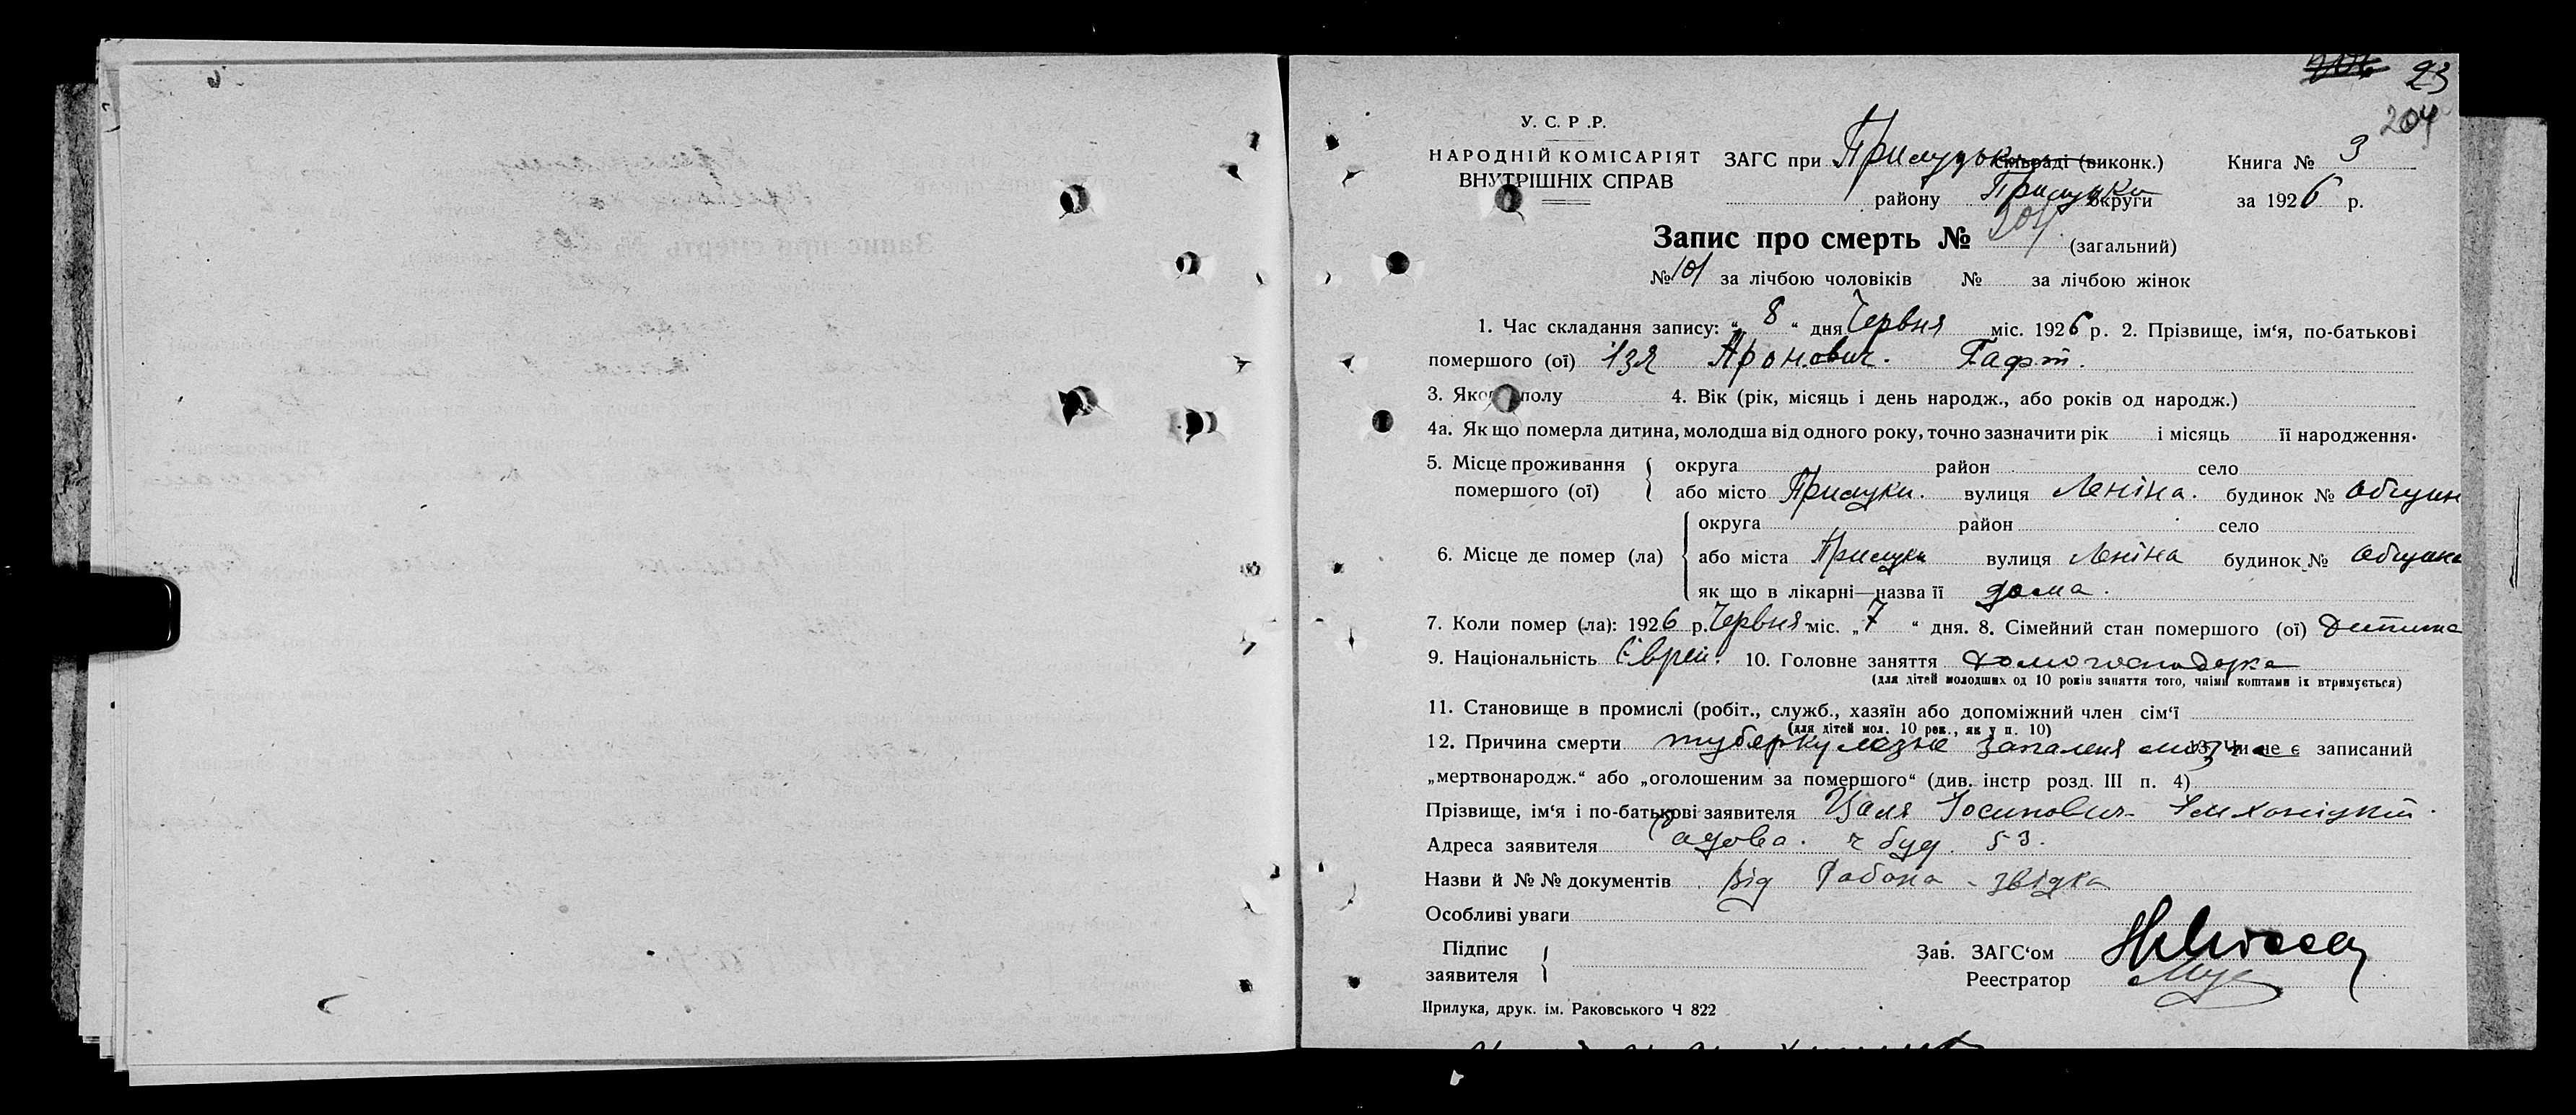 23
204
У. С. Р .Р.
НАРОДНІЙ КОМІСАРІЯТ
ВНУТРІШНІХ СПРАВ
ЗАГС при Прилуцьк (виконк.) Книга № 3
району Прилуки округи за 1926 р.
Запис про смерть № 204 (загальний)
№ 101 за лічбою чоловіків № за лічбою жінок
1. Час складання запису: “ 8 “ дня Червня міс. 1926 р. 2. Прізвище, ім‘я, по-батькові
помершого (ої) Ізя Аронович. Гафт.
3. Якого полу 4. Вік (рік, місяць і день народж., або років од народж.)
4а. Як що померла дитина, молодша від одного року, точно зазначити рік і місяць її народження.
5. Місце проживання помершого (ої) округа район село
або місто Прилуки. вулиця Леніна. будинок №
округа район село
6. Місце де помер (ла) або міста Прилуки вулиця Леніна будинок №
як що в лікарні—назва її дома.
7. Коли помер (ла): 1926 р. Червня міс. „ 7 “ дня. 8. Сімейний стан помершого (ої) Дитина
9. Національність Єврей. 10. Головне заняття домогосподарка
(для дітей молодших од 10 років заняття того, чиїми коштами їх втримується)
11. Становище в промислі (робіт., служб., хазяїн або допоміжний член сім‘ї
(для дітей мол. 10 рок., як у п. 10)
12. Причина смерти туберкульозне запаленя мозга 13. Чи не є записаний
„мертвонародж.“ або „оголошеним за помершого“ (див. інстр розд. III п. 4)
Прізвище, ім‘я і по-батькові заявителя Йосипович
Адреса заявителя Садова. ч буд. 53.
Назви й №№ документів від Рабона - звідка
Особливі уваги
Підпис заявителя
Зав. ЗАГС‘ом
Реестратор
Прилука, друк. ім. Раковського Ч 822